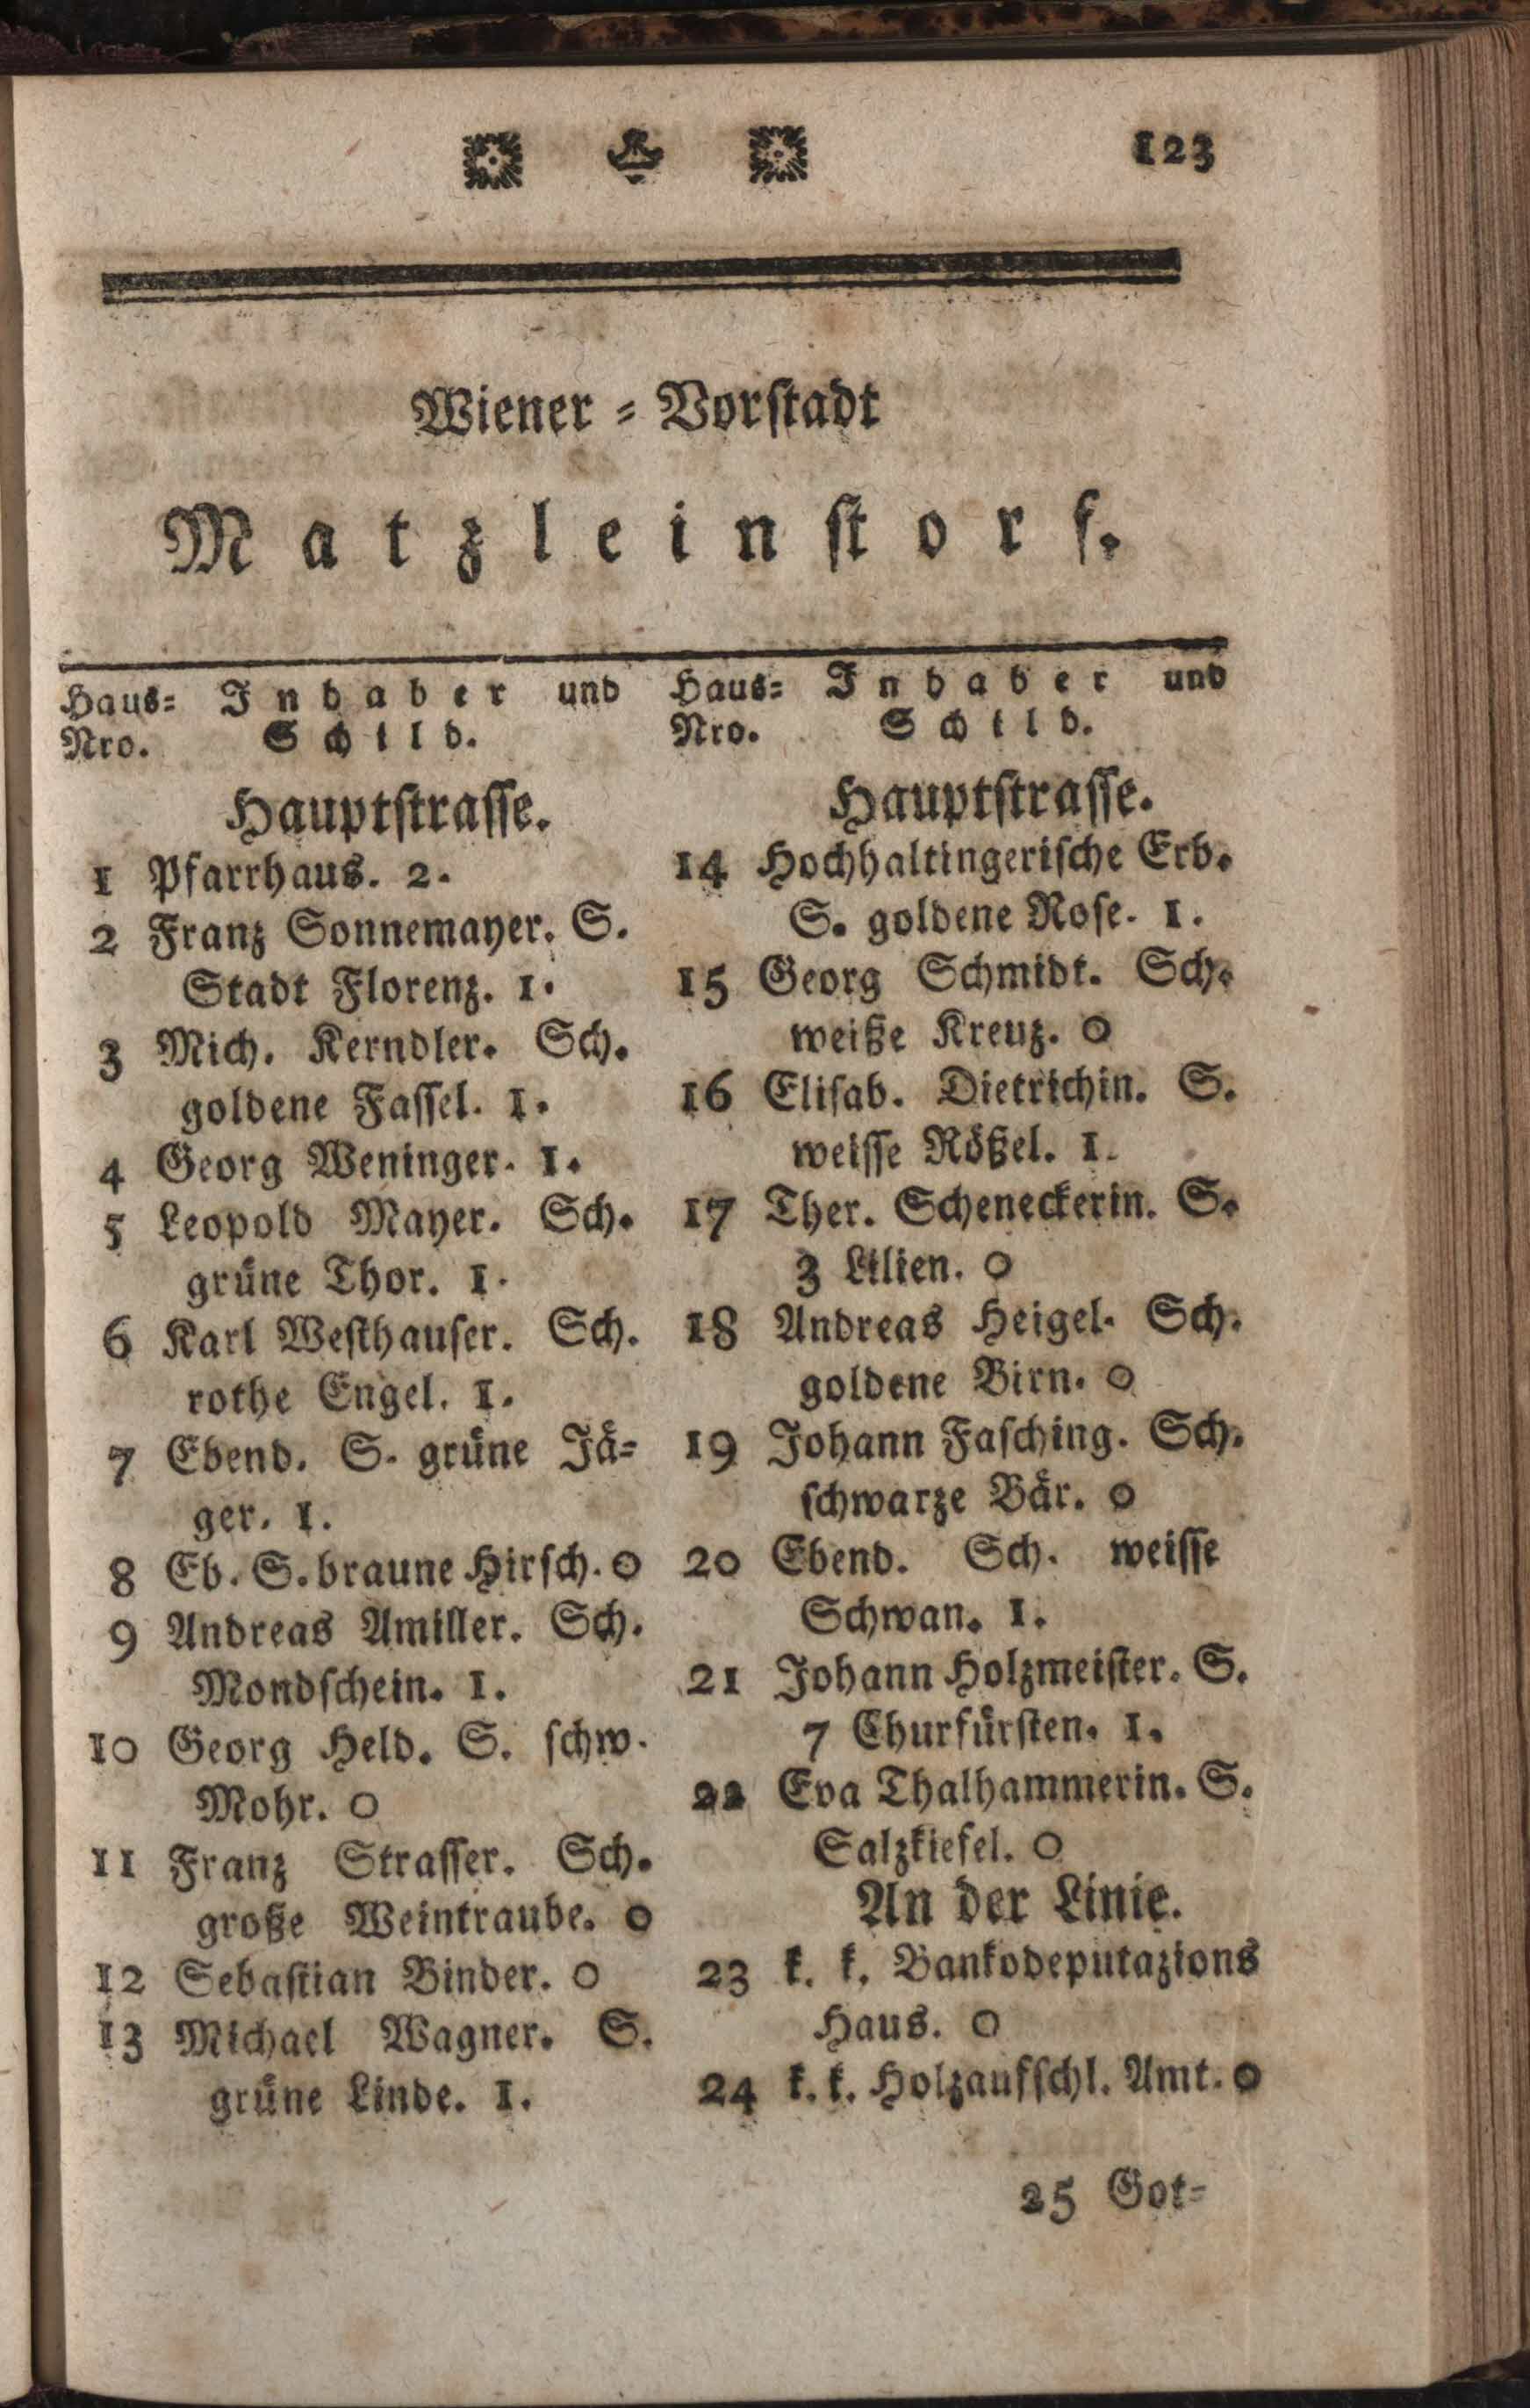 123
Wiener = Vorstadt
Matzleinstorf.
Haus= Inhaber und
Nro. Schild.
Hauptstrasse.
1 Pfarrhaus. 2.
2 Franz Sonnemayer. S.
Stadt Florenz. 1.
3 Mich. Kerndler. Sch.
goldene Fassel. 1.
4 Georg Weninger. 1.
5 Leopold Mayer. Sch.
grüne Thor. 1.
6 Karl Westhauser. Sch.
rothe Engel. 1.
7 Ebend. S. grüne Jä=
ger. 1.
8 Eb. S. braune Hirsch. 0
9 Andreas Amiller. Sch.
Mondschein. 1.
10 Georg Held. S. schw.
Mohr. 0
11 Franz Strasser. Sch.
große Weintraube. 0
12 Sebastian Binder. 0
13 Michael Wagner. S.
grüne Linde. 1.
Haus= Inhaber und
Nro. Schild.
Hauptstrasse.
14 Hochhaltingerische Erb.
S. goldene Rose. 1.
15 Georg Schmidt. Sch.
weiße Kreuz. 0
16 Elisab. Dietrichin. S.
weisse Rößel. 1.
17 Ther. Scheneckerin. S.
3 Lilien. 0
18 Andreas Heigel. Sch.
goldene Birn. 0
19 Johann Fasching. Sch.
schwarze Bär. 0
20 Ebend. Sch. weisse
Schwan. 1.
21 Johann Holzmeister. S.
7 Churfürsten. 1.
22 Eva Thalhammerin. S.
Salzkiefel. 0
An der Linie.
23 k. k. Bankodeputazions
Haus. 0
24 k. k. Holzaufschl. Amt. 0
25 Got=